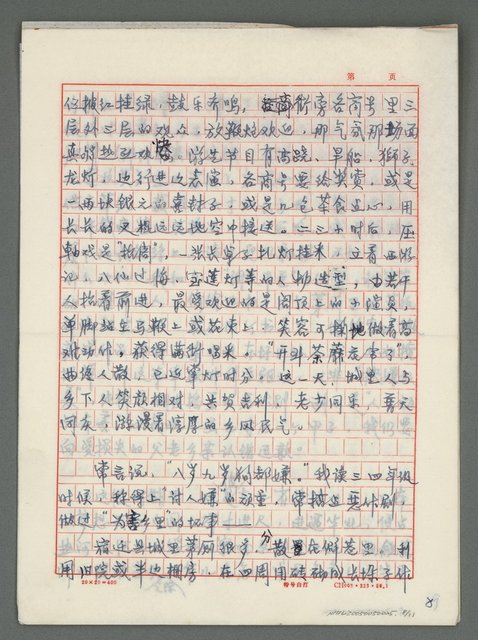 第 页
位披红挂绿,鼓乐齐鸣,商街旁各商号里三
层外三层的观众,放鞭炮欢迎,那气氛那场面
真的热烈欢快。游艺节目有高跷、旱船、狮子
龙灯,边行进边表演,各商号要给奖赏,或是
一两块银元的喜封子,或是几包茶食点心,用
长长的叉棍远远地空中接送。二三小时后,压
轴戏是“抬阁”,一张长桌子扎灯挂彩,立着西游
记、八仙过海、宝莲灯等的人物造型,由若干
人抬着前进,最受欢迎的是阁顶上的小演员,
单脚站立马鞭上或花束上,笑容可掬地做着高
难动作。获得满街喝采。“开到荼蘼花事了”
曲终人散,已近掌灯时分。这一天,城里人与
乡下人笑颜相对,共贺吉利,老少同乐,普天
同庆,弥漫着淳厚的乡风民气。
常言说,八岁九岁狗都嫌。“我读三四年级
时候,称得上“讨人嫌”的顽童,常搞些恶作剧,
做过“为害乡里”的坏事——
宿迁县城里茅厕很多,分散在僻巷里,利
用旧院或半边棚房,在四周用砖砌成长垛子作
20×20=400
8